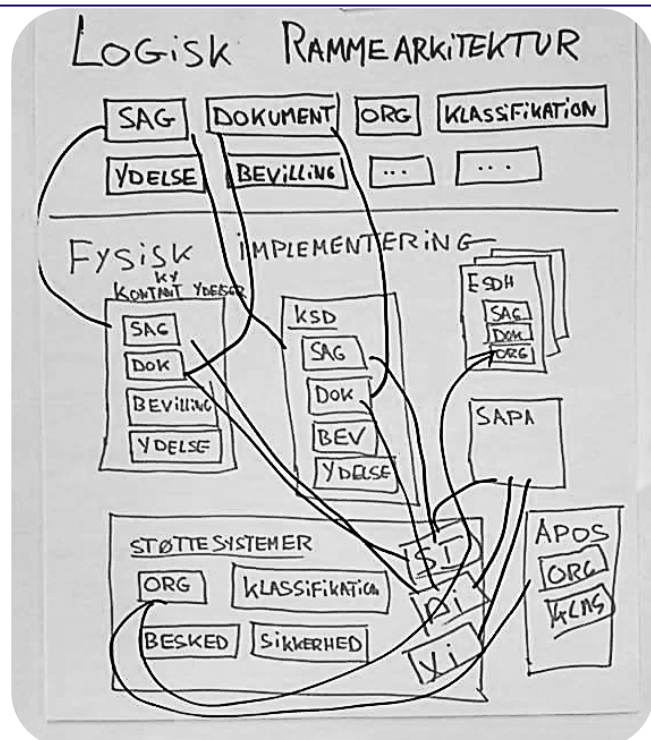 LOGISK RAMMEARKITEKTUR
SAG DOKUMENT ORG KLASSIFIKATION
YDELSE BEVILLING ... ...
FYSISK IMPLEMENTERING
KY
KONTANT YDELSER
SAG
DOK
BEVILLING
YDELSE
KSD
SAG
DOK
BEV
YDELSE
ESDH
SAG
DOK
ORG
SAPA
STØTTESYSTEMER
ORG KLASSIFIKATION
BESKED SIKKERHED
SI
DI
YI
APOS
ORG
KLAS